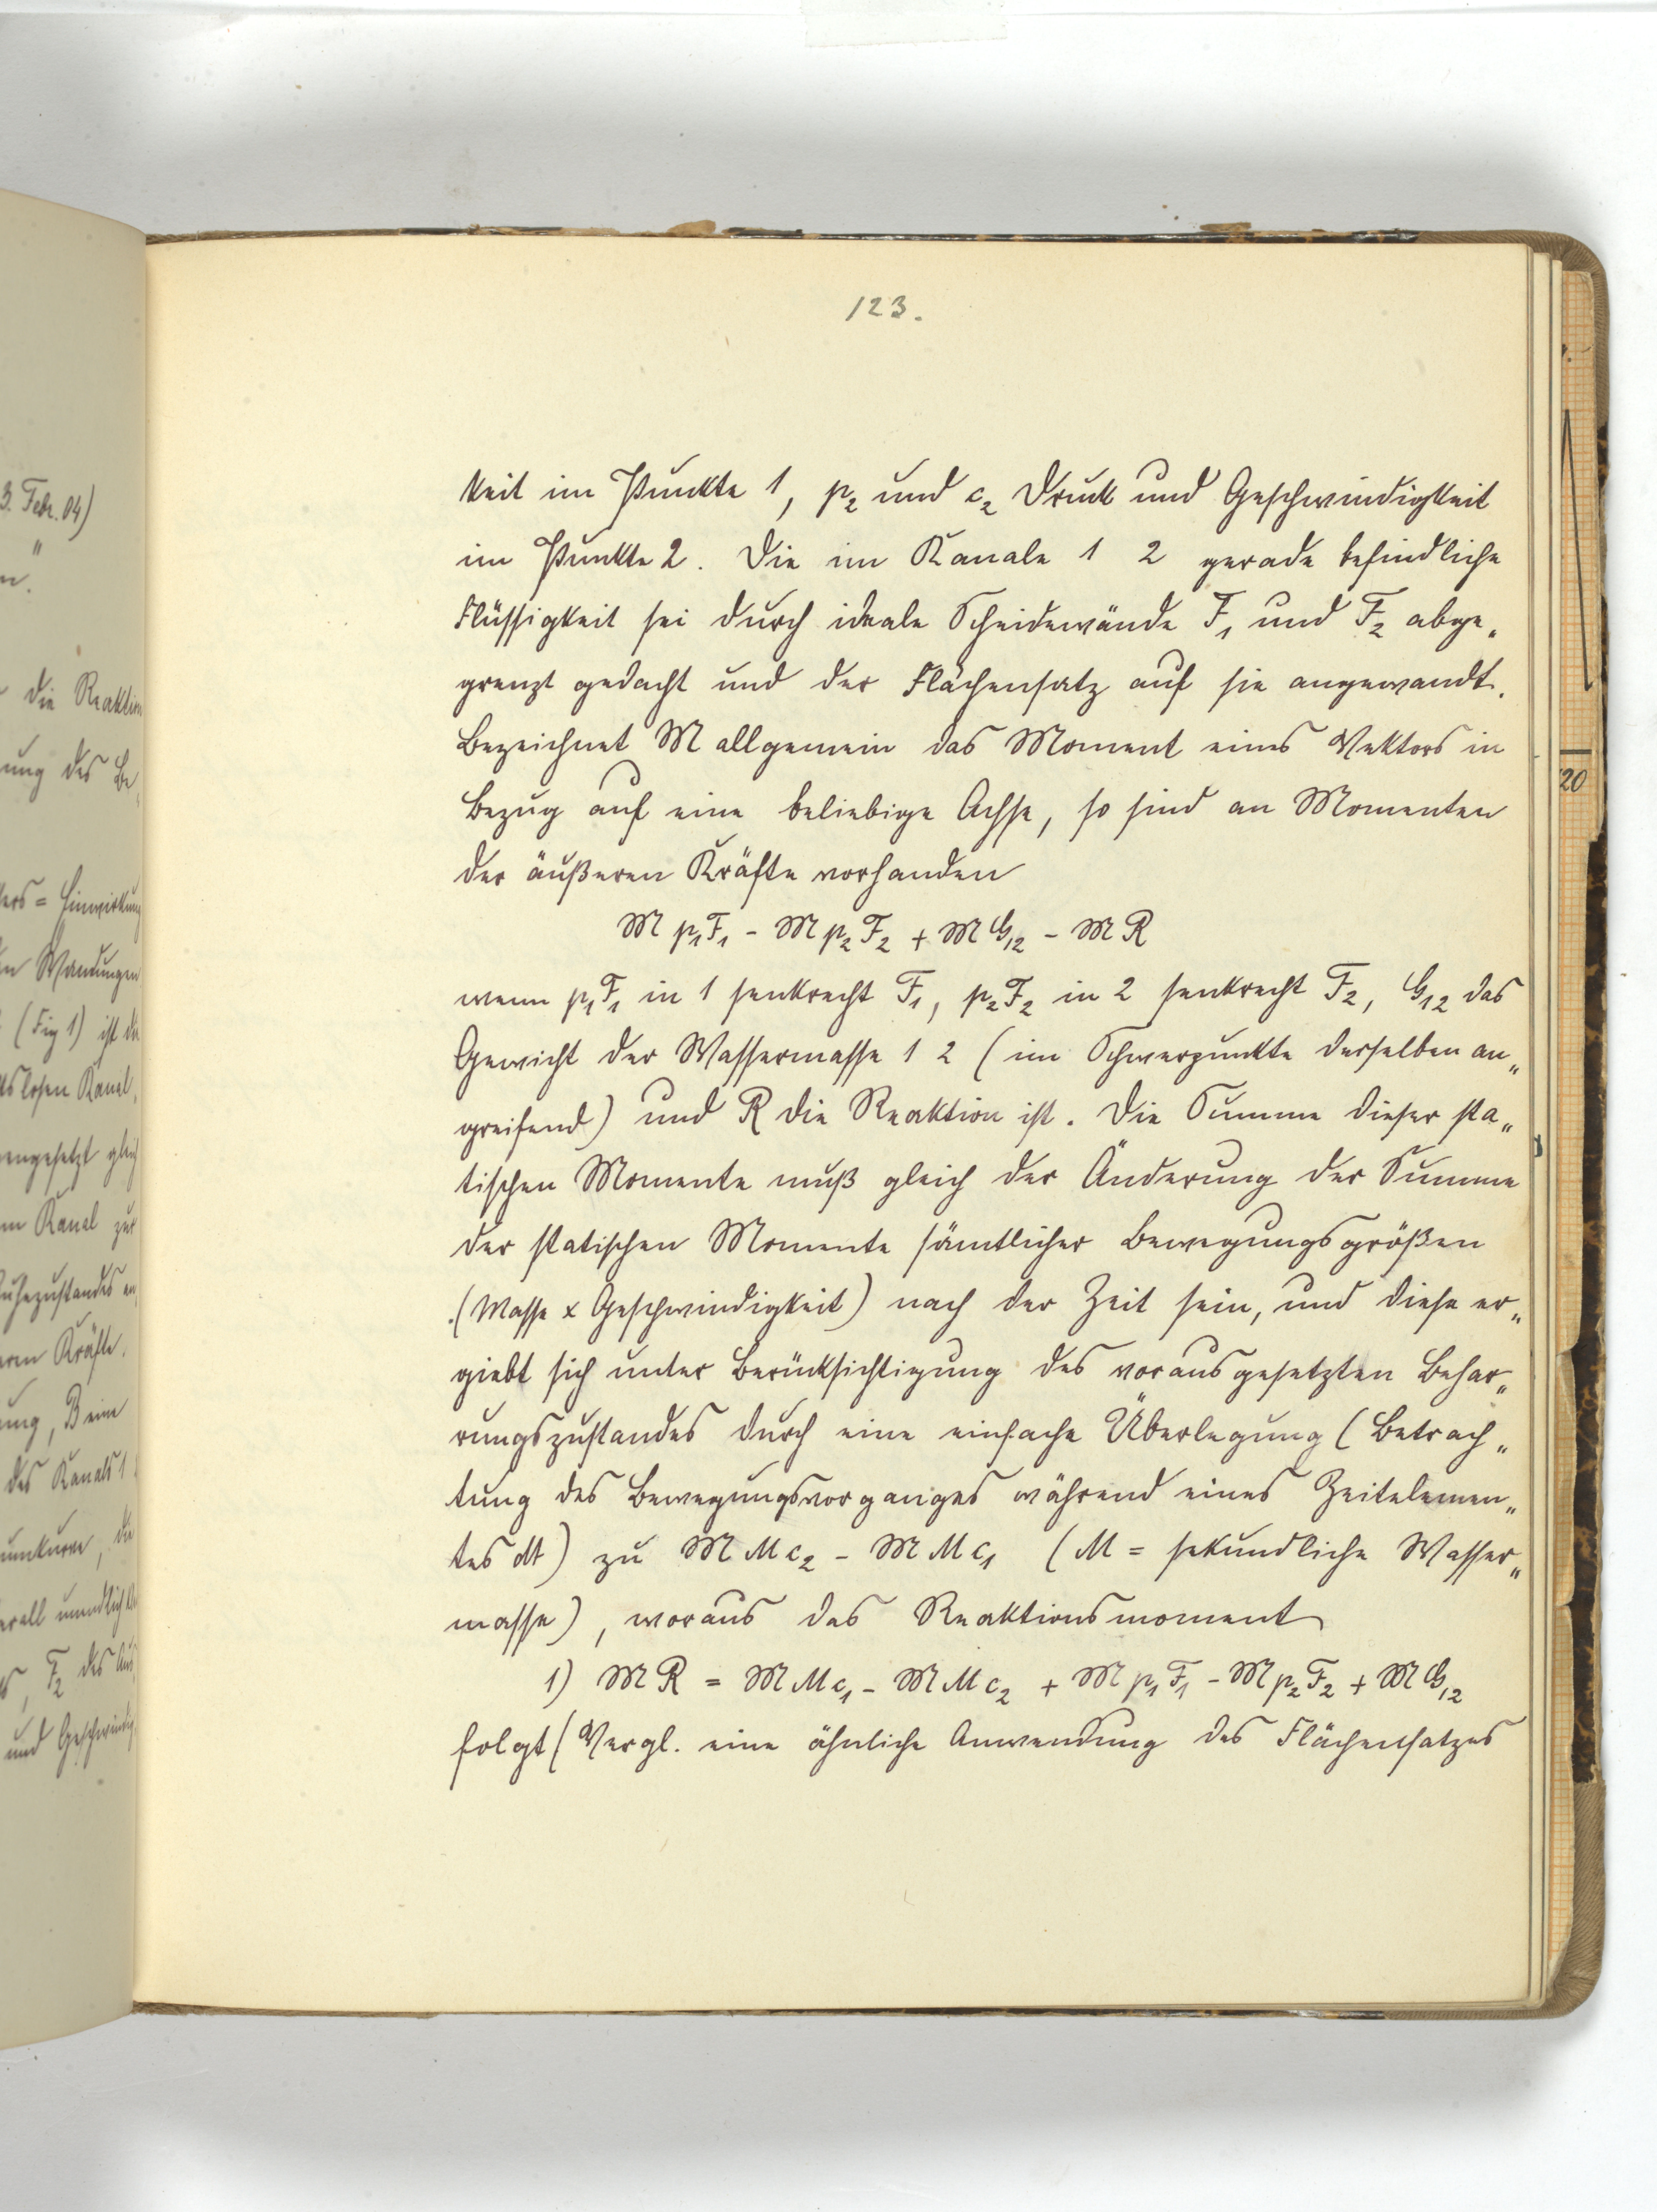 123.
keit im Punkte 1, p₂ und c₂ Druck und Geschwindigkeit
im Punkte 2. Die im Kanale 1 2 gerade befindliche
Flüssigkeit sei durch ideale Scheidewände F₁ und F₂ abge„
grenzt gedacht und der Flächensatz auf sie angewandt.
Bezeichnet 𝔐 allgemein das Moment eines Vektors in
Bezug auf eine beliebige Achse, so sind an Momenten
der äußeren Kräfte vorhanden
𝔐 p₁F₁ - 𝔐 p₂F₂ + 𝔐 G₁₂ - 𝔐 R
wenn p₁F₁ in 1 senkrecht F₁, p₂F₂ in 2 senkrecht F₂, G₁₂ das
Gewicht der Wassermasse 1 2 (im Schwerpunkte derselben an„
greifend) und R die Reaktion ist. Die Summe dieser sta„
tischen Momente muß gleich der Änderung der Summe
der statischen Momente sämtlicher Bewegungsgrößen
(Masse x Geschwindigkeit) nach der Zeit sein, und diese er„
giebt sich unter Berücksichtigung des vorausgesetzten Behar„
rungszustandes durch eine einfache Überlegung (Betrach„
tung des Bewegungsvorganges während eines Zeitelemen„
tes dt) zu 𝔐 M c₂ - 𝔐 M c₁ (M = sekundliche Wasser„
masse), woraus das Reaktionsmoment
1) 𝔐 R = 𝔐 M c₁ - 𝔐 M c₂ + 𝔐 p₁F₁ - 𝔐 p₂F₂ + 𝔐 G₁₂
folgt (Vergl. eine ähnliche Anwendung des Flächensatzes
3. Febr. 04)
die Reaktion
ung des Be
ers = Einwirkung
n Wandungen
(Fig 1) ist die
slosen Kanal
engesetzt gleich
m Kanal zur
uhezustandes en
ren Kräfte.
ung, B eine
des Kanals 1
umkurve, die
erall unendlich
F₂ des Aus
und Geschwindig
20